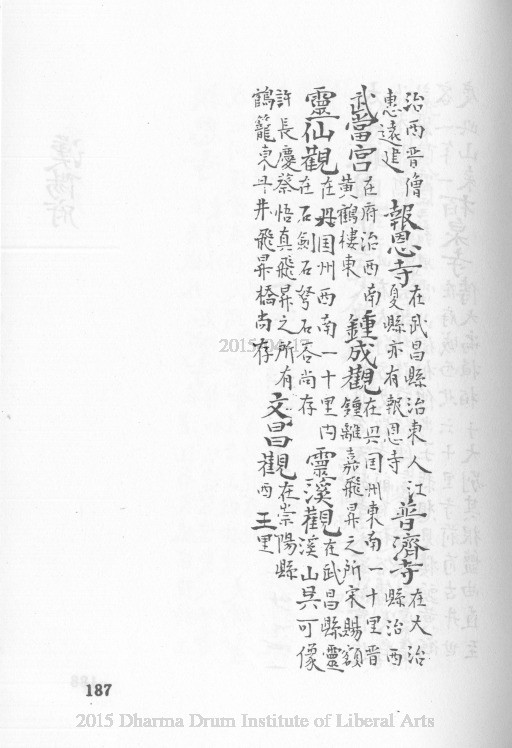 治西晉僧
惠遠建
報恩寺
在武昌縣治東人江
夏縣亦有報恩寺
普濟寺
在大冶
縣治西
武當宮
在府治西南
黃鶴樓東
鍾成觀
在興国州東南一十里晉
鍾離嘉飛昇之所宋賜額
靈仙觀
在興国州西南一十里內
在石劍石弩石谷尚存
靈溪觀
在武昌縣靈
溪山吳可像
許長慶蔡悟真飛昇之所有
鶴籠東丹井飛昇橋尚存
文昌觀
在崇陽縣
西王里
187
2015/04/17
2015 Dharma Drum Institute of Liberal Arts